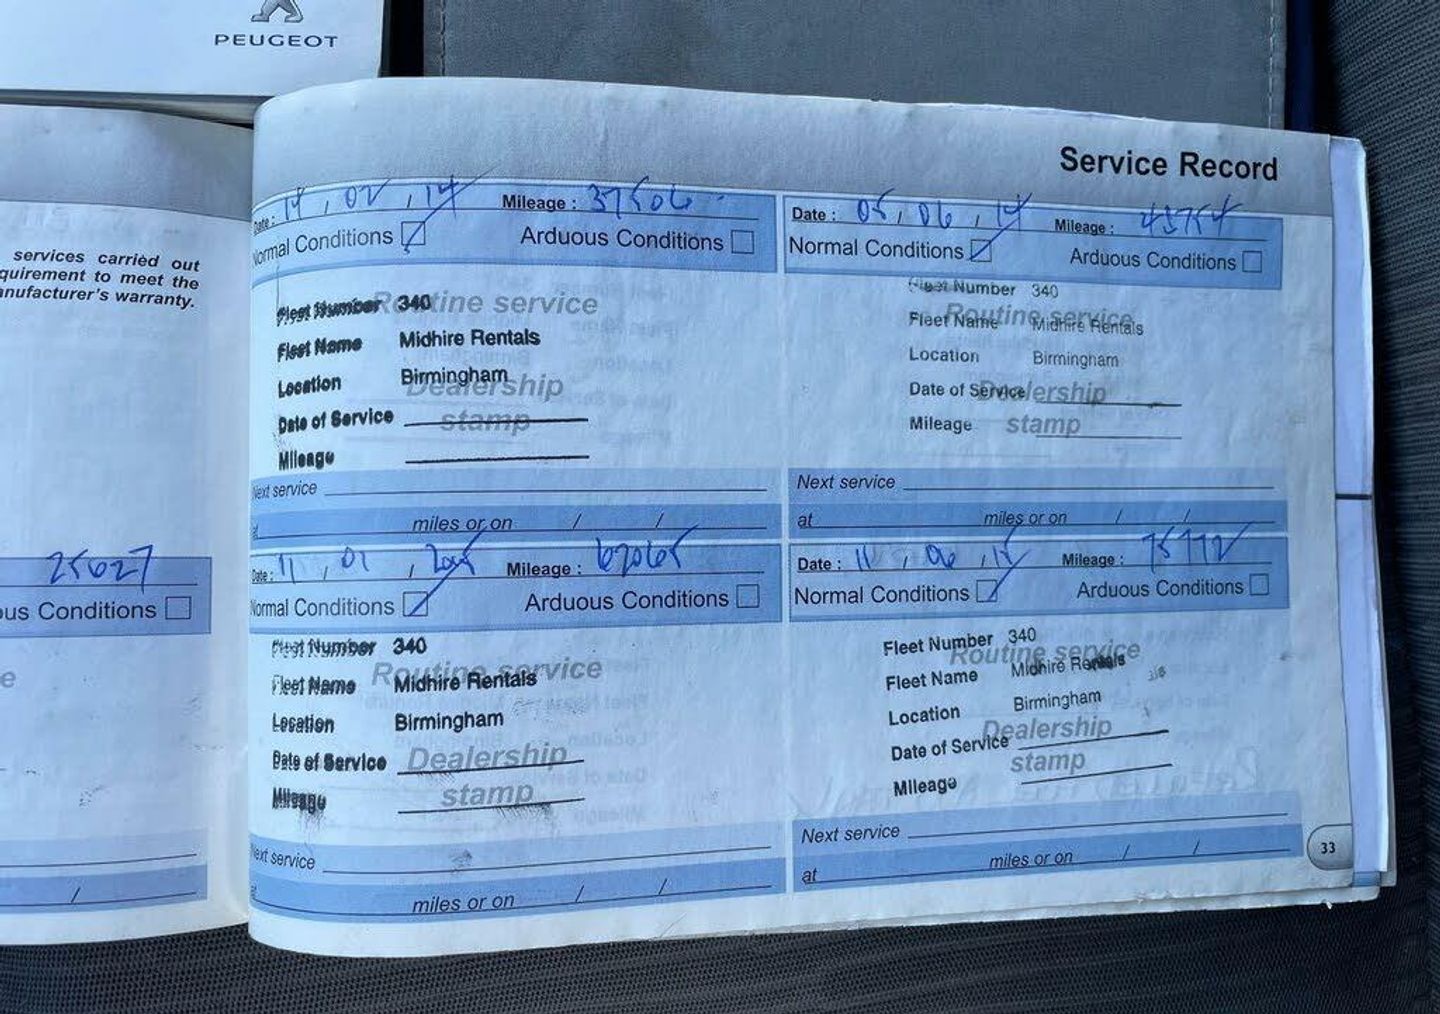 PEUGEOT
services carried out
quirement to meet the
anufacturer's warranty.
25627
ous Conditions
e
/
Service Record
Date : 14 , 02 , 14 Mileage : 37506
Normal Conditions Arduous Conditions
Routine service
Fleet Number 340
Fleet Name Midhire Rentals
Location Birmingham
Dealership
Date of Service
stamp
Mileage
Next service
at miles or on / /
Date : 05 , 06 , 14 Mileage : 43754
Normal Conditions Arduous Conditions
Fleet Number 340
Routine service
Fleet Name Midhire Rentals
Location Birmingham
Date of Service
Dealership
Mileage
stamp
Next service
at miles or on / /
Date : 11 , 01 , 2015 Mileage : 62065
Normal Conditions Arduous Conditions
Fleet Number 340
Routine service
Fleet Name Midhire Rentals
Location Birmingham
Date of Service
Dealership
Mileage
stamp
Next service
at miles or on / /
Date : 11 , 06 , 15 Mileage : 75772
Normal Conditions Arduous Conditions
Fleet Number 340
Routine service
Fleet Name Midhire Rentals
Location Birmingham
Dealership
Date of Service
stamp
Mileage
Next service
at miles or on / /
33